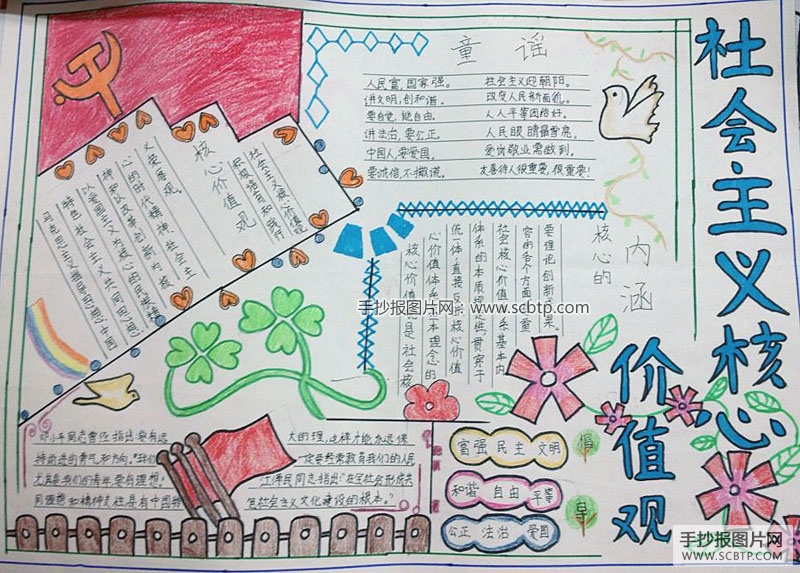 社会主义核心
价值观
童谣
人民富,国家强。 社会主义迎朝阳。
讲文明,创和谐。 改变人民新面貌。
要自觉,能自由。 人人平等因络好。
讲法治,要公正。 人民眼睛最雪亮。
中国人,要爱国。 爱岗敬业需做到。
要诚信,不撒谎。 友善待人很重要,很重要!
社会主义核心价值观
积极培育和践行
核心价值观
马克思主义指导思想、中国
特色社会主义共同思想、
以爱国主义为核心的民族精
神和以改革创新为核
心的时代精神、社会主
义荣辱观。
内涵
核心的
核心价值观是社会核
心价值体系基本理念的
统一体,直接反映核心价值
体系的本质规定,贯穿于
社会核心价值体系基本内
容的各个方面
要理论创新成果。
手抄报图片网:www.scbtp.com
邓小平同志曾经指出:要有远
大的理
才能永远保
持前进的勇气和方向。
一定要经常教育我们的人民
尤其是我们的青年,要有理想
江泽民同志指出
社会形成共
同理想和精神支柱是有中国特
色社会主义文化建设的根本。"
富强 民主 文明
和谐 自由 平等
公正 法治 爱国
倡
导
手抄报图片网
WWW.SCBTP.COM